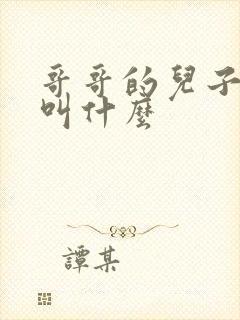 哥哥的兒子
叫什麼
譚某